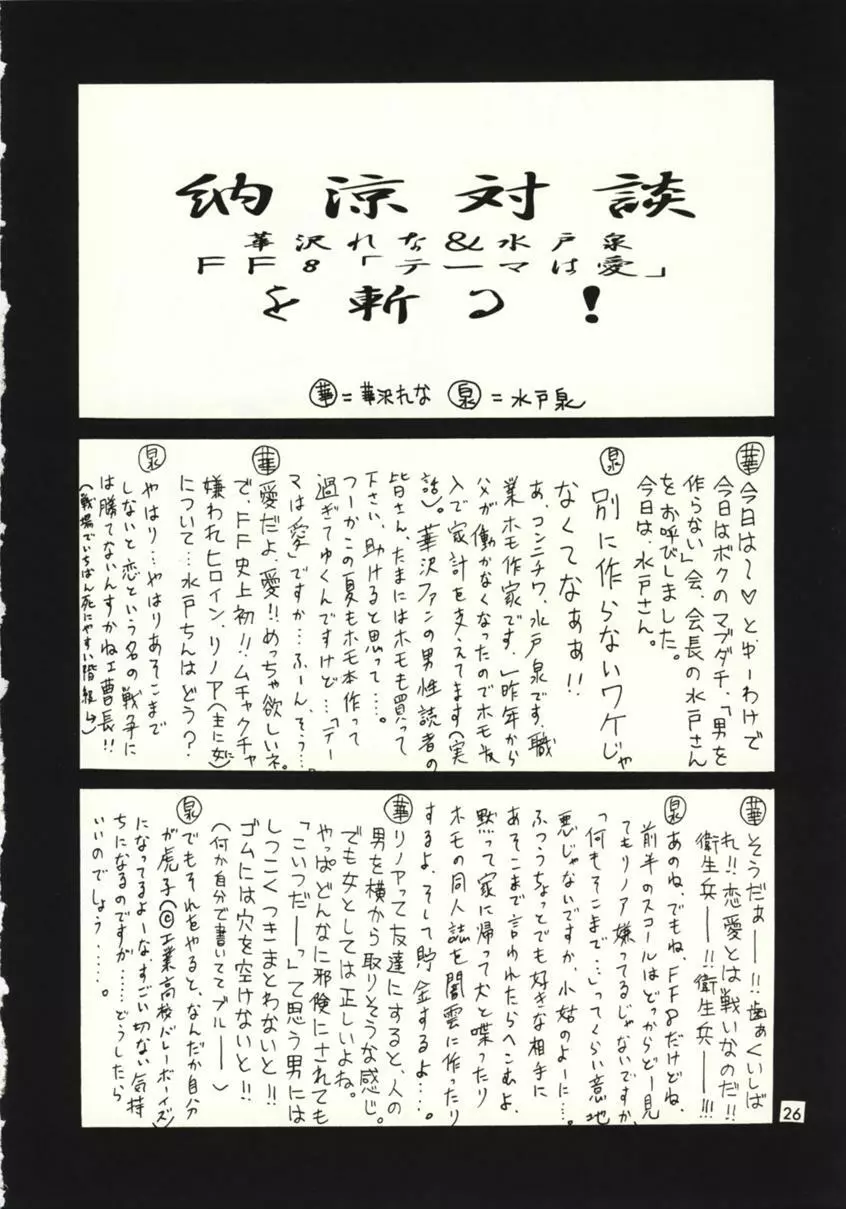 納涼対談
華沢れな&水戸泉
FF8「テーマは愛」
を斬る!
華=華沢れな 泉=水戸泉
華 今日は〜♡と、ゆーわけで
今日はボクのマブダチ、「男を
作らない」会、会長の水戸さん
をお呼びしました。
今日は、水戸さん。
泉 別に作らないワケじゃ
なくてなぁぁ!!
あ、コンニチワ、水戸泉です。職
業ホモ作家です。一昨年から
ハハが働かなくなったのでホモ収
入で家計を支えてます(実
話)。華沢ファンの男性読者の
皆さん、たまにはホモも買って
下さい、助けると思って…。
つーかこの夏もホモ本作って
過ぎてゆくんですけど…「テー
マは愛」ですか…ふーん、そう…。
華 愛だよ、愛!!めっちゃ欲しいネ。
で、FF史上初!!ムチャクチャ
嫌われヒロイン、リノア(主に女に)
について…水戸ちんはどう?
泉 やはり…やはりあそこまで
しないと恋という名の戦争に
は勝てないんすかねェ曹長!!
(戦場でいちばん死にやすい階級↑)
華 そうだぁー!!歯ぁくいしば
れ!!恋愛とは戦いなのだ!!
衛生兵ー!!衛生兵ー!!!
泉 あのね、でもね、FF8だけどね、
前半のスコールはどっからどー見
てもリノア嫌ってるじゃないですか、
「何もそこまで…」ってくらい意地
悪じゃないですか、小姑のよーに…。
ふつうちょっとでも好きな相手に
あそこまで言われたらへこむよ、
黙って家に帰って犬と喋ったり
ホモの同人誌を闇雲に作ったり
するよ、そして貯金するよ…。
華 リノアって友達にすると、人の
男を横から取りそうな感じ。
でも女としては正しいよね。
やっぱどんなに邪険にされても
「こいつだーっ」て思う男には
しつこくつきまとわないと!!
ゴムには穴を空けないと!!
(何か自分で書いててブルー)
泉 でもそれをやると、なんだか自分
が虎子(©工業高校バレーボーイズ)
になってるよーな、すごい切ない気持
ちになるのですが……どうしたら
いいのでしょう……。
26